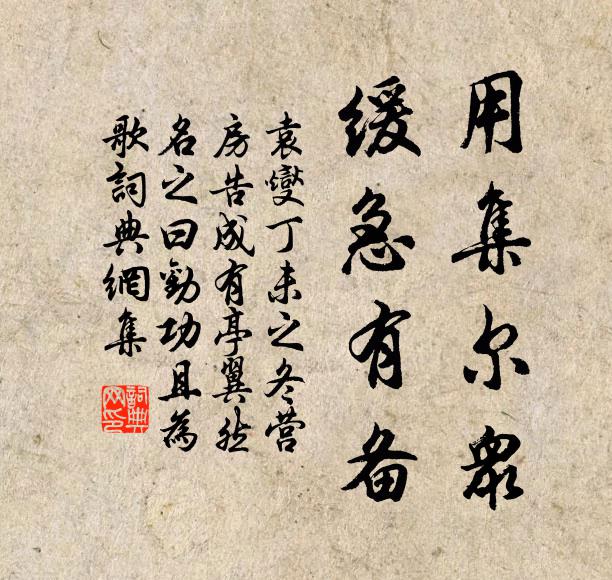 用集尔眾
缓急有备
袁燮丁未之冬营
房告成有亭翼然
名之曰勸功且為
歌詞典網集
詞典网印